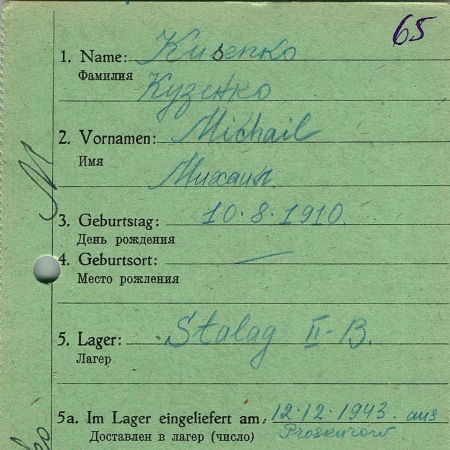 65
1. Name: Kusenko
Фамилия
Кузенко
2. Vornamen: Michail
Имя
Михаил
3. Geburtstag: 10.8.1910.
День рождения
4. Geburtsort: —
Место рождения
5. Lager: Stalag II-B.
Лагер
5a. Im Lager eingeliefert am: 12.12.1943. aus
Доставлен в лагер (число) Proskurow